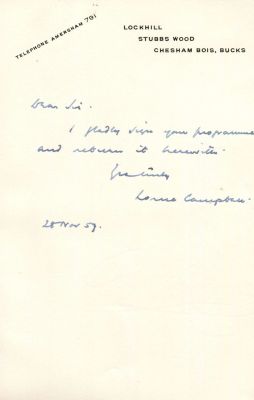 TELEPHONE AMERSHAM 791
LOCKHILL
STUBBS WOOD
CHESHAM BOIS, BUCKS
Dear Sir.
I gladly sign your programme
and return it herewith.
Yrs truly
Lorne Campbell.
28 Nov 59.